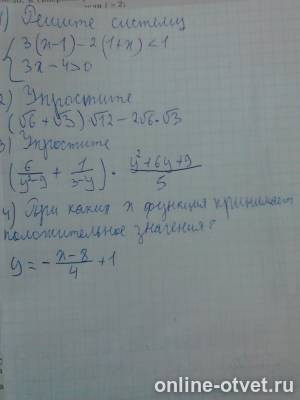 1) Решите систему
{ 3(x-1)-2(1+x)<1
3x-4>0
2) Упростите
(√6+√3)√12-2√6·√3
3) Упростите
(6/(y²-9) + 1/(3-y)) · (y²+6y+9)/5
4) При каких x функция принимает
положительное значения?
y=-(x-8)/4+1
online-otvet.ru